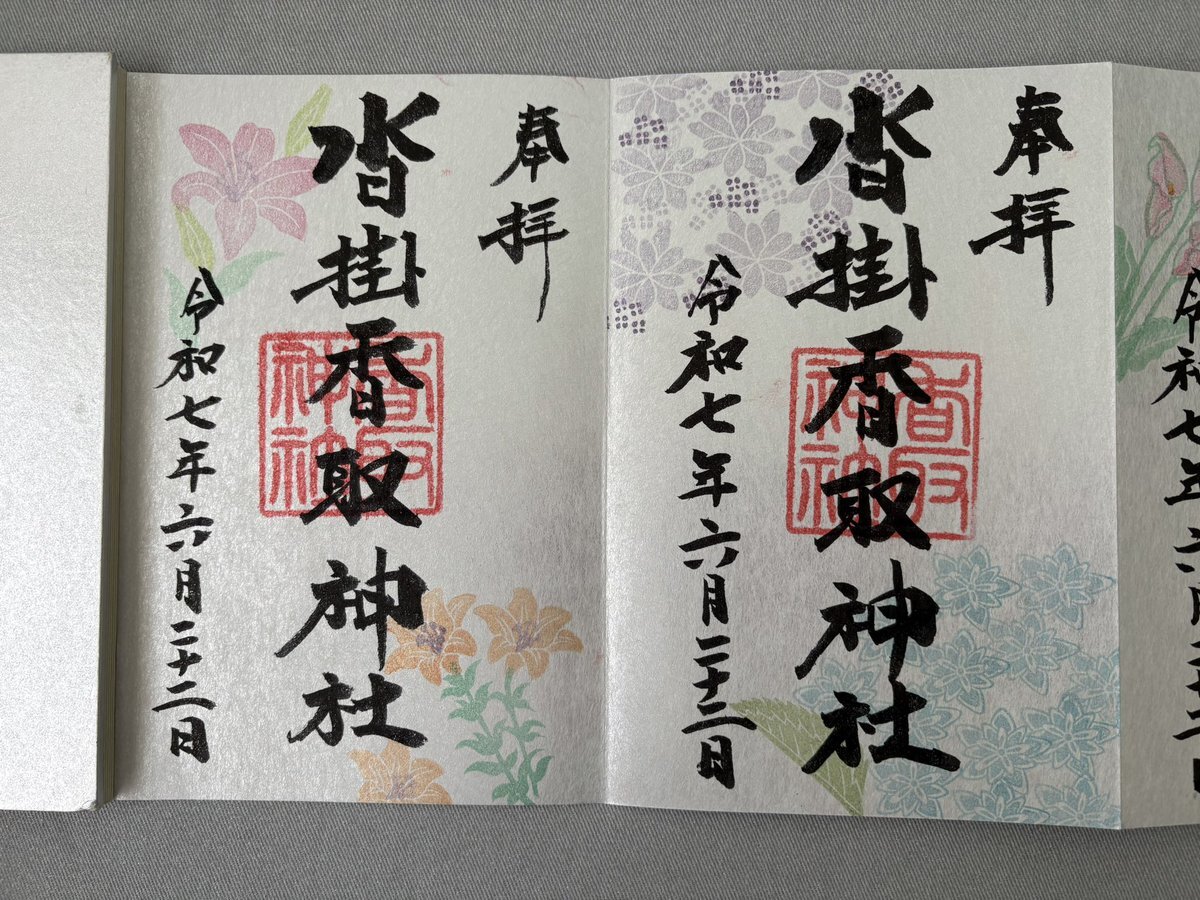 令和七年六月二十二日
奉拝
沓掛香取神社
香取神社
令和七年六月二十二日
奉拝
沓掛香取神社
香取神社
令和七年六月二十二日